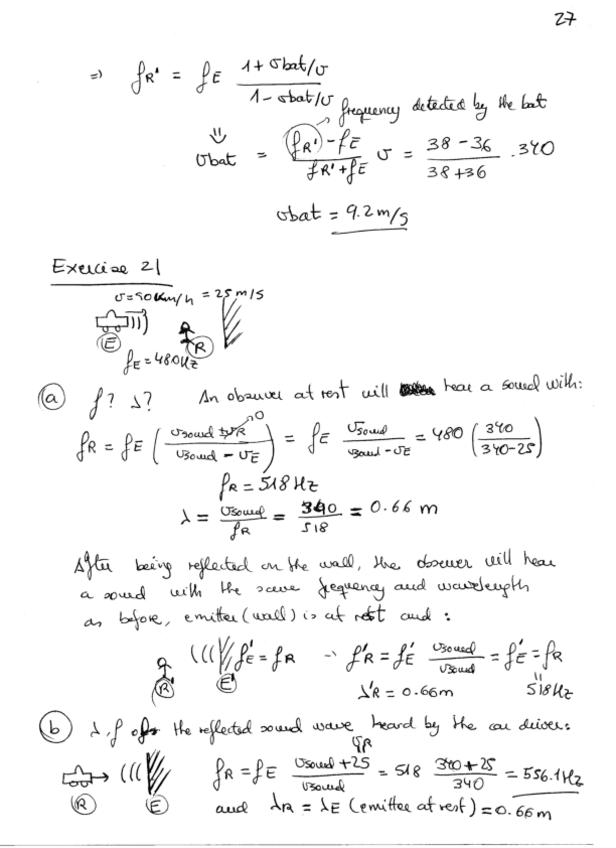 27
=> fR' = fE (1 + vbat/v) / (1 - vbat/v)
→ frequency detected by the bat
⇓
vbat = (fR' - fE) / (fR' + fE) v = (38 - 36) / (38 + 36) . 340
vbat = 9.2 m/s
Exercise 21
v = 90 km/h = 25 m/s
E R
fE = 480 Hz
(a) f? λ? An observer at rest will hear a sound with:
fR = fE ((vsound ± vR→0) / (vsound - vE)) = fE vsound / (vsound - vE) = 480 (340 / (340-25))
fR = 518 Hz
λ = vsound / fR = 340 / 518 = 0.66 m
After being reflected on the wall, the observer will hear
a sound with the same frequency and wavelength
as before, emitter (wall) is at rest and :
((( f'E = fR → f'R = f'E vsound / vsound = f'E = fR
R' E' λ'R = 0.66m 518 Hz
(b) λ, f of the reflected sound wave heard by the car driver:
vR
fR = fE (vsound + 25) / vsound = 518 (340 + 25) / 340 = 556.1 Hz
R E and λR = λE (emitter at rest) = 0.66 m